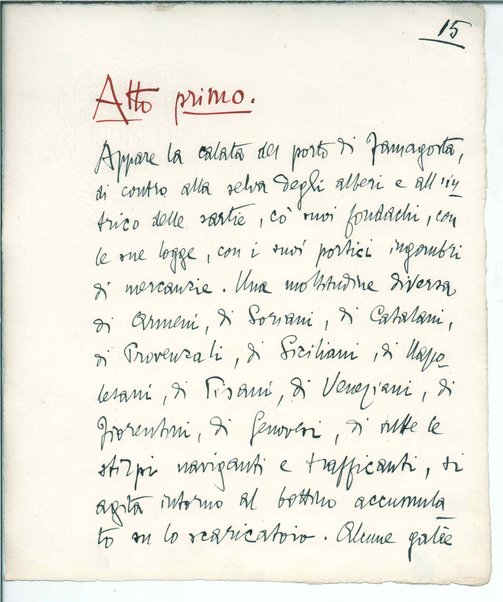 15
Atto primo.
Appare la calata del porto di Famagosta,
di contro alla selva degli alberi e all'in-
trico delle sartie, co' suoi fondachi, con
le sue logge, con i suoi portici ingombri
di mercanzie. Una moltitudine diversa
di Armeni, di Soriani, di Catalani,
di Provenzali, di Siciliani, di Napo-
letani, di Pisani, di Veneziani, di
Fiorentini, di Genovesi, di tutte le
stirpi naviganti e trafficanti, si
agita intorno al bottino accumula
to su lo scaricatoio. Alcune galèe